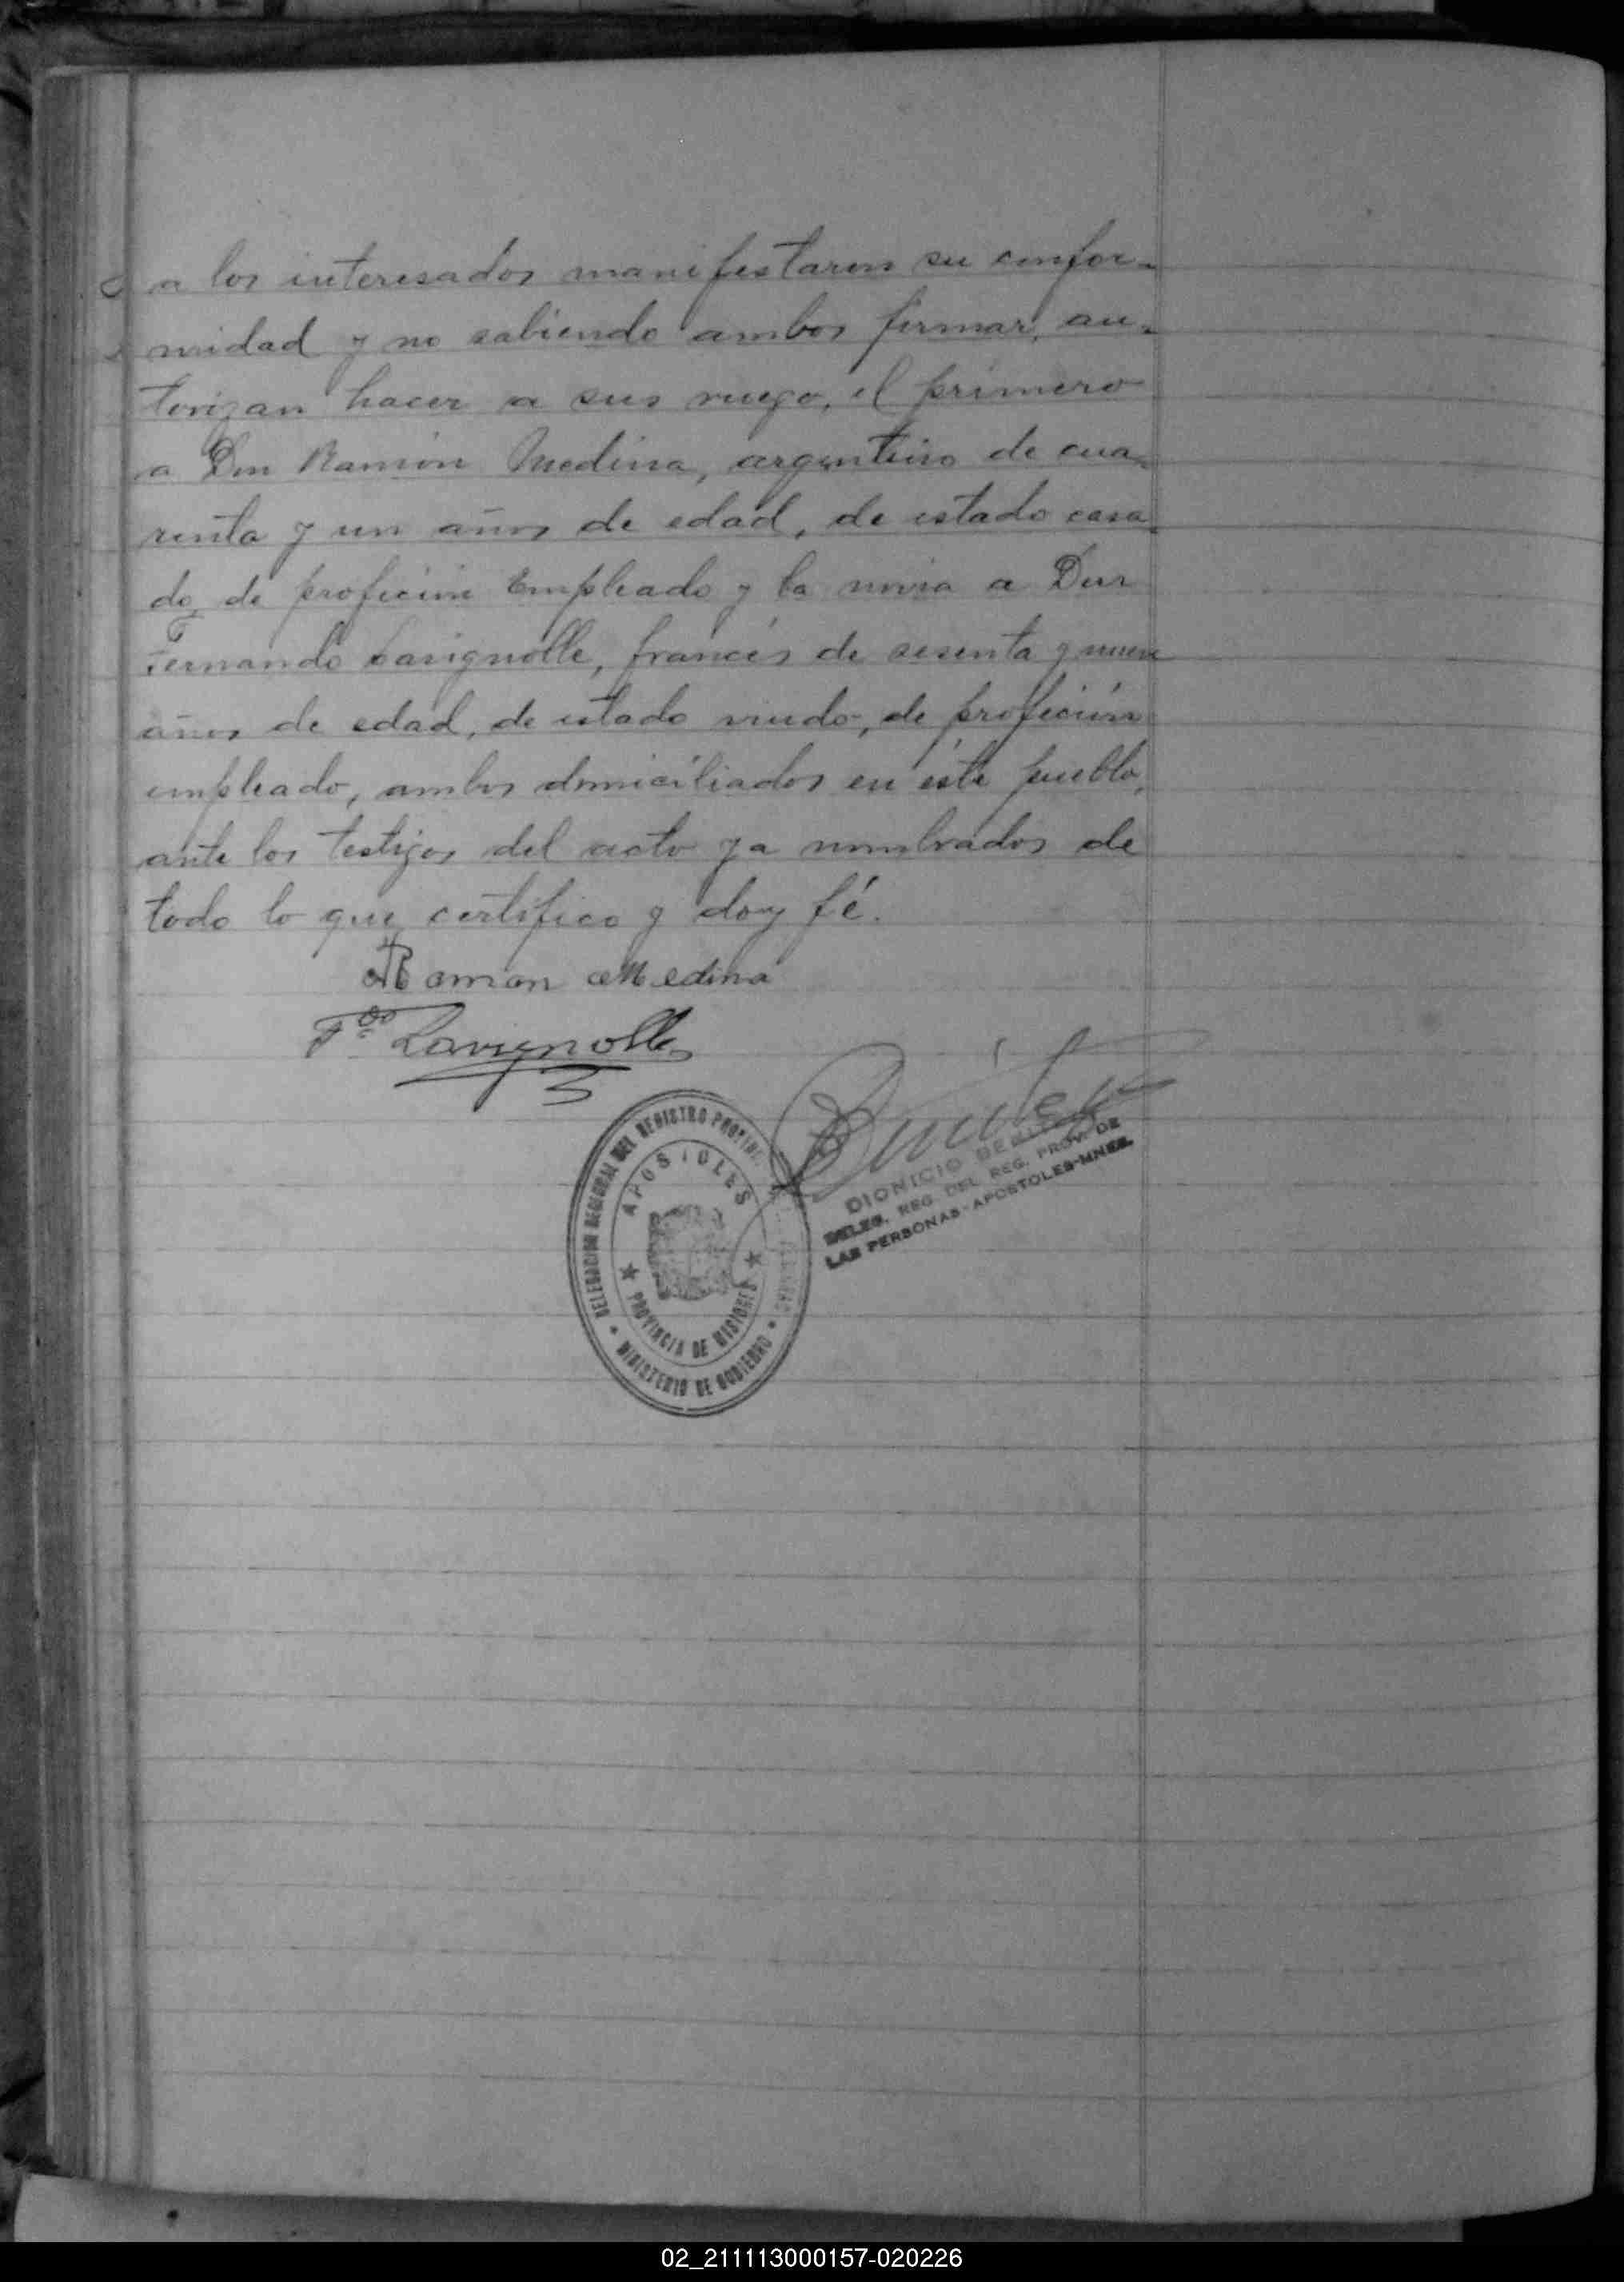 a los interesados manifestaron su confor-
midad y no sabiendo ambos firmar, au-
torizan hacer a sus ruego, el primero
a Don Ramón Medina, argentino de cua-
renta y un años de edad, de estado casa-
do, de profeción Empleado y la novia a Don
Fernando Lavignolle, francés de sesenta y nueve
años de edad, de estado viudo, de profeción
empleado, ambos domiciliados en éste pueblo,
ante los testigos del acto ya nombrados de
todo lo que certifico y doy fé.
Ramon Medina
Fdo Lavignolle
DELEGACION REGIONAL DEL REGISTRO PROVINC
APOSTOLES
PROVINCIA DE MISIONES
MINISTERIO DE GOBIERNO
DIONICIO BENITEZ
DELEG. REG. DEL REG. PROV. DE
LAS PERSONAS - APOSTOLES-MNES.
02_211113000157-020226